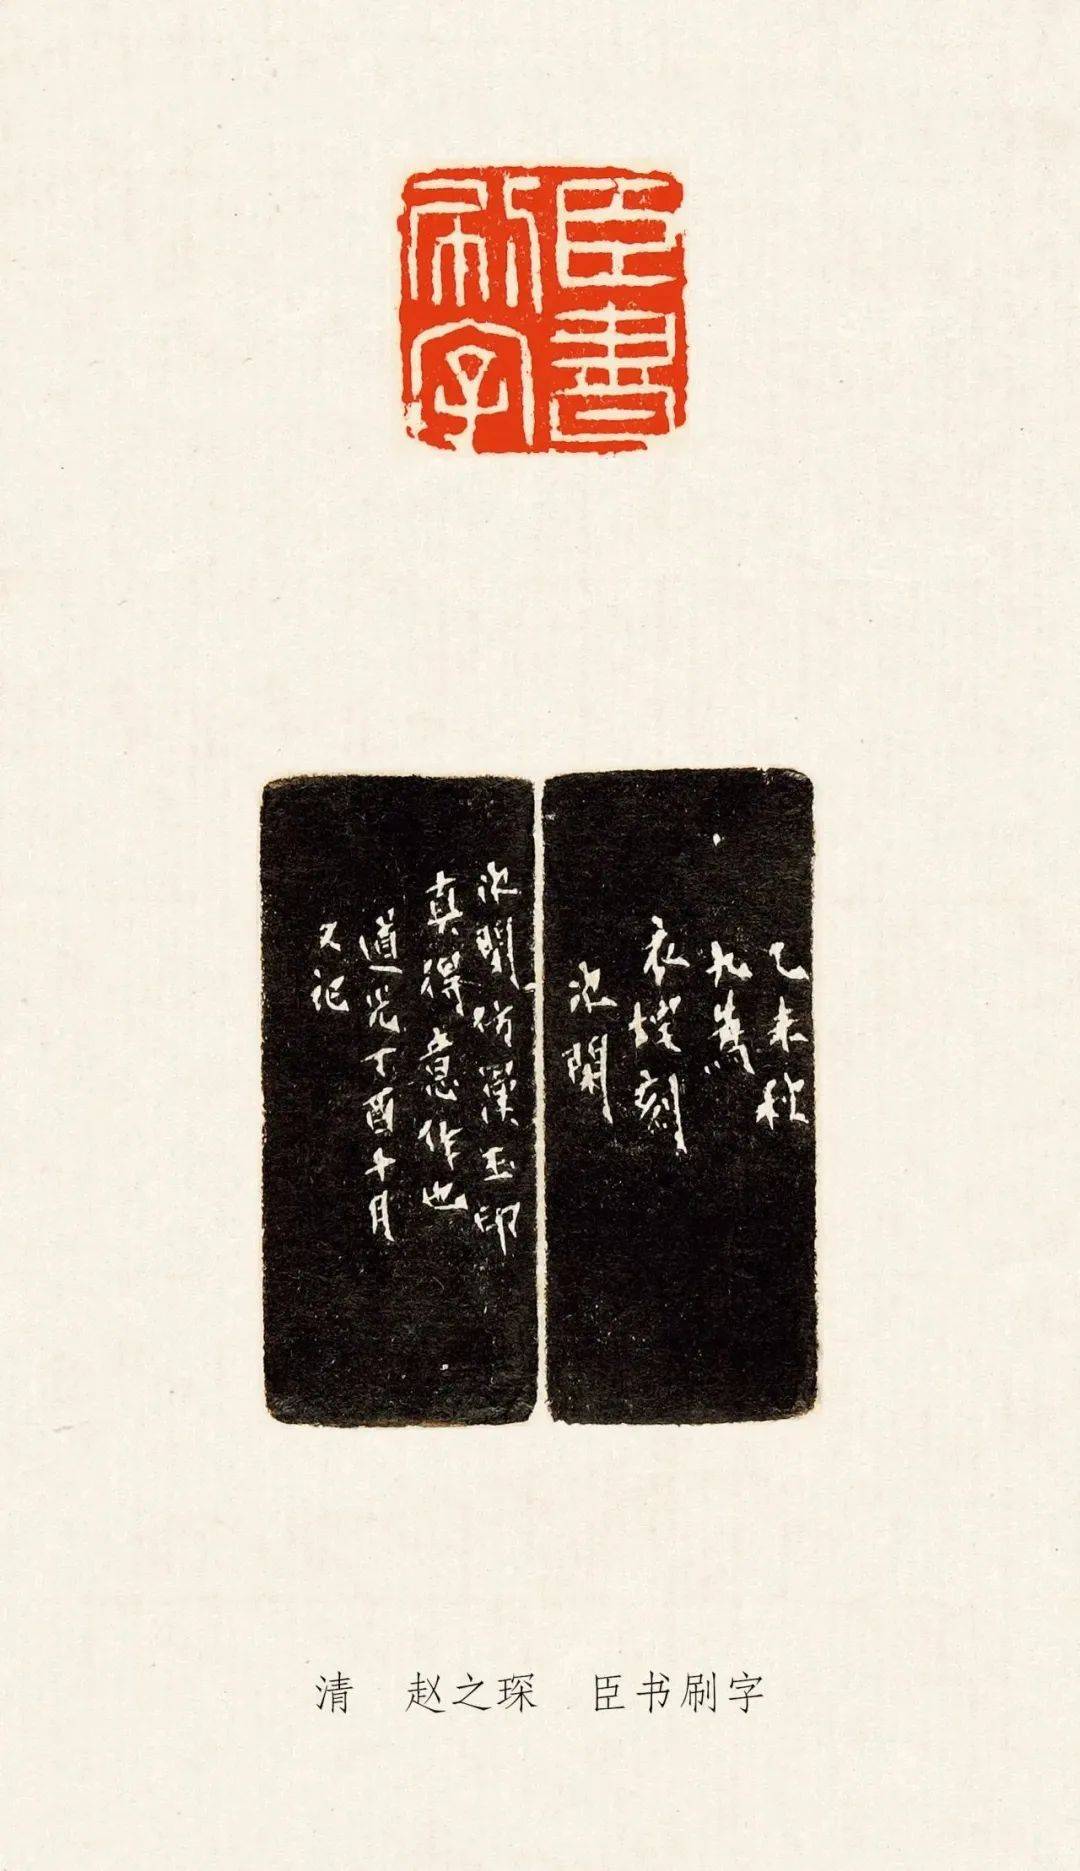 臣書
刷字
乙未秋
九為
衣谷刻
次閑
次閑仿漢玉印
真得意作也
道光丁酉十月
又記
清 赵之琛 臣书刷字